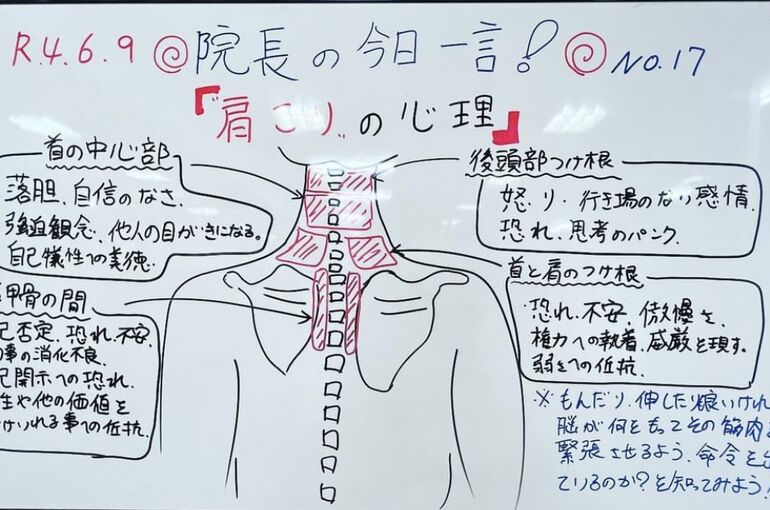 R.4.6.9 院長の今日一言! NO.17
『肩こり”の心理』
首の中心部
落胆、自信のなさ、
強迫観念、他人の目がきになる。
自己犠牲での美徳
後頭部つけ根
怒り・行き場のない感情
恐れ、思考のパンク
甲骨の間
己否定、恐れ、不安、
事の消化不良、
己開示への恐れ、
生や他の価値を
け入れる事への抵抗
首と肩のつけ根
恐れ、不安、傲慢さ、
権力への執着、威厳を現す。
弱さへの抵抗
※もんだり、伸したり良いけれ
脳が何をもってその筋肉
緊張させるよう、命令を
ているのか?を知ってみよう!